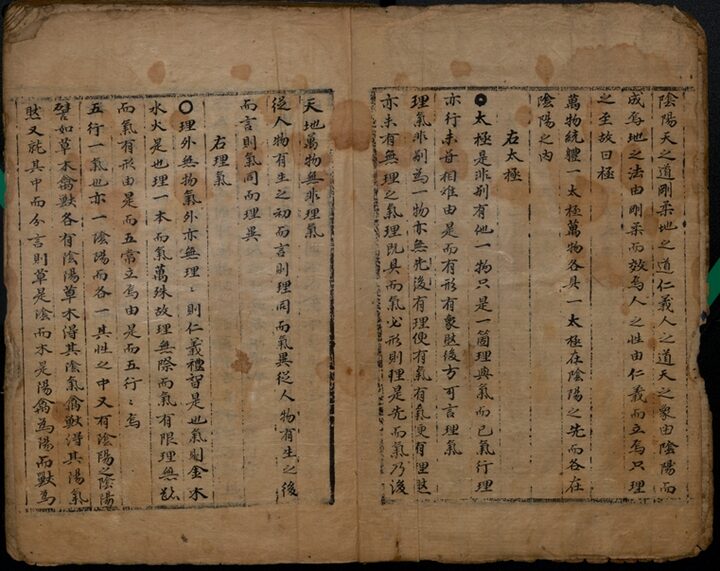 陰陽天之道剛柔地之道仁義人之道天之象由陰陽而
成焉地之法由剛柔而效焉人之性由仁義而立焉只理
之至故曰極
萬物統軆一太極萬物各具一太極在陰陽之先而各在
陰陽之內
右太極
○太極是非別有他一物只是一箇理與氣而已氣行理
亦行未甞相難由是而有形有象然後方可言理氣
理氣非別為一物亦無先後有理便有氣有氣便有理然
亦未有無理之氣理旣具而氣必形則理是先而氣乃後
天地萬物無非理氣
從人物有生之初而言則理同而氣異從人物有生之後
而言則氣同而理異
右理氣
○理外無物氣外亦無理〻則仁義禮智是也氣則金木
水火是也理一本而氣萬殊故理無際而氣有限理無
而氣有形由是而五常立焉由是而五行〻焉
五行一氣也亦一陰陽而各一其性之中又有陰陽之陰陽
譬如草木禽獸各有陰陽草木得其陰氣禽獸得其陽氣
然又就其中而分言則草是陰而木是陽禽為陽而獸為